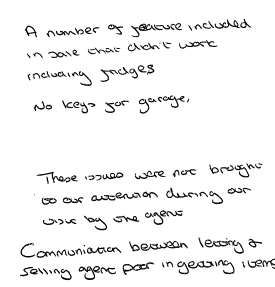 A number of feature included
in sale that didn't work
including fridges
No keys for garage,
These issues were not brought
to our attention during our
visit by the agent
Communiation between letting &
selling agent poor in getting items